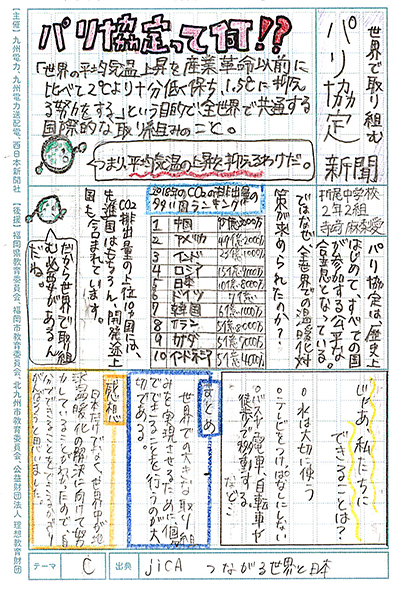 世界で取り組む
パリ協定
新聞
折尾中学校
2年2組
パリ協定って何!?
「世界の平均気温上昇を産業革命以前に
比べて2℃より十分低く保ち、1.5℃に抑え
る努力をする」という目的で、全世界で共通する
国際的な取り組みのこと。
つまり、平均気温の上昇を抑えるわけだ。
パリ協定は、歴史上
はじめて、すべての国
が参加する公平な
合意となっている。
ではなぜ、全世界での温暖化対
策が求められたのか?
2018年のCO₂の排出量の
多い国ランキング
1 中国
2 アメリカ
3 インド
4 ロシア
5 日本
6 ドイツ
7 韓国
8 イラン
9 カナダ
10 インドネシア
CO₂排出量の上位10か国に、
先進国はもちろん、開発途上
国も含まれています。
だから世界で取り組
む必要があるん
だね。
じゃあ、私たちに
できることは?
○水は大切に使う
○テレビをつけっぱなしにしない
○バスや電車、自転車や
徒歩で移動する。
など…
まとめ
世界での大きな取り組
みを実現させるために個人
でできることを行うのが大
切である。
感想
日本だけでなく世界中が地
球温暖化の解決に向けて努
力していることがわかったので、自
分ができることをできるだけ
がんばろうと思いました。
テーマ C 出典 JICA つながる世界と日本
【主催】九州電力、九州電力送配電、西日本新聞社
【後援】福岡県教育委員会、福岡市教育委員会、北九州市教育委員会、公益財団法人 理想教育財団